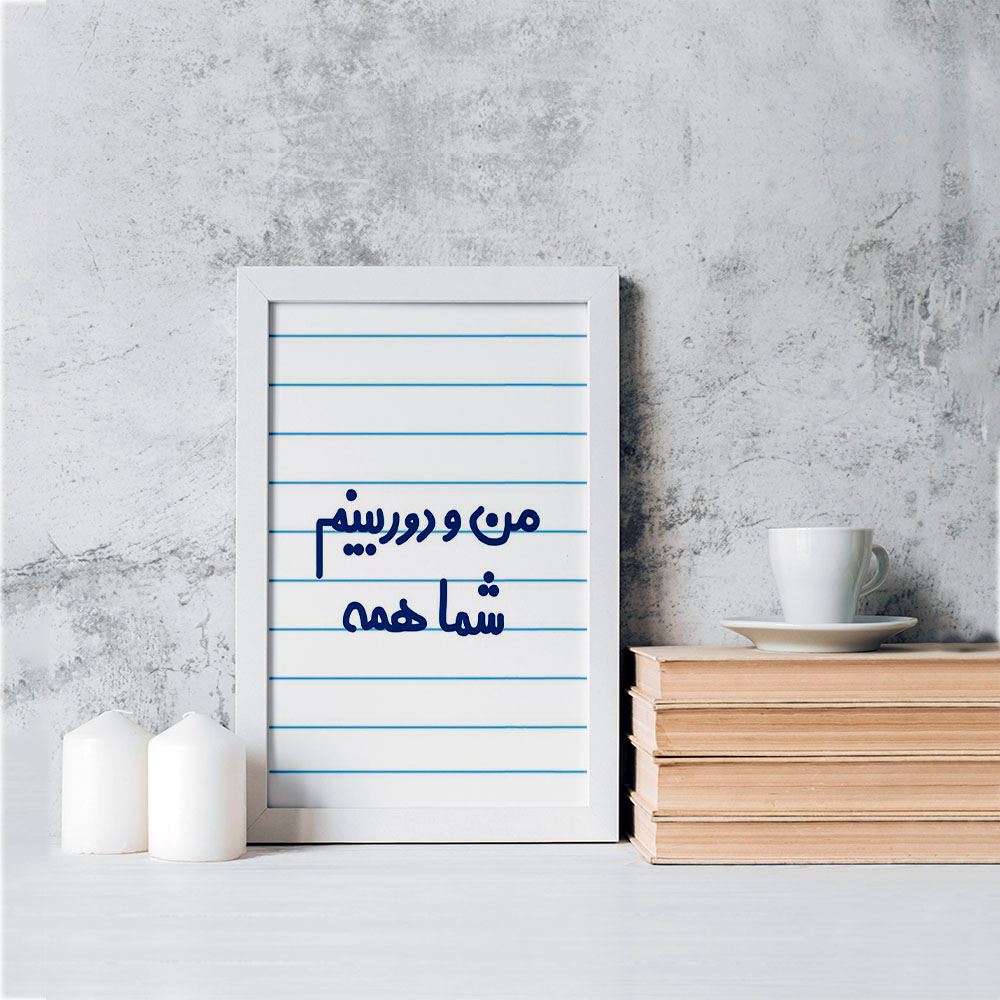 من و دوربینم
شما همه